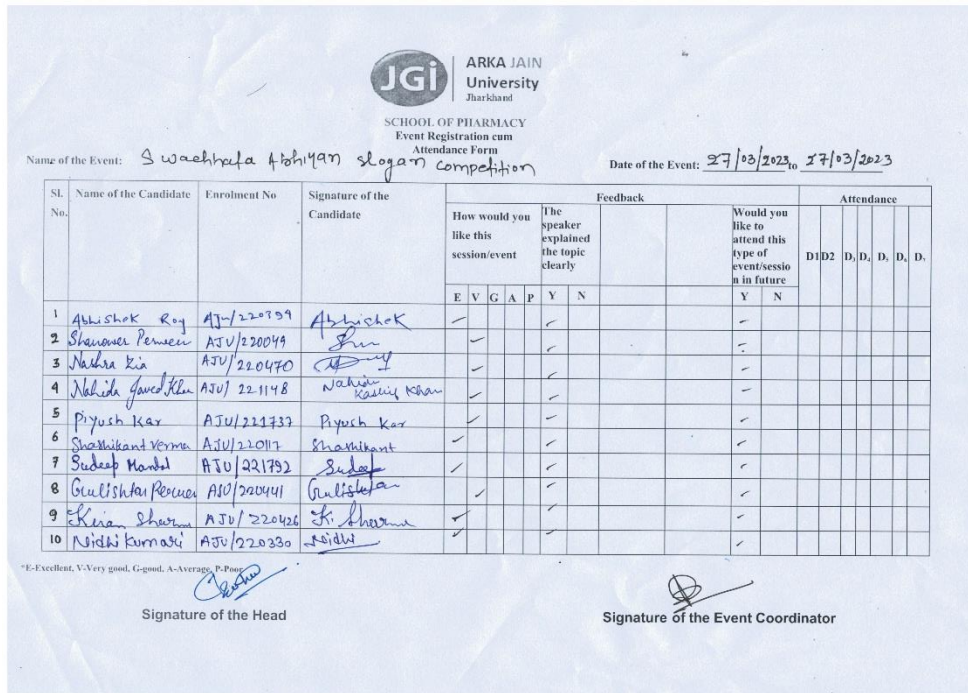 JGi
ARKA JAIN
University
Jharkhand
SCHOOL OF PHARMACY
Event Registration cum
Attendance Form
Name of the Event: Swachhata Abhiyan slogan competition
Date of the Event: 27/03/2023 to 27/03/2023
Sl. No. Name of the Candidate Enrolment No Signature of the Candidate Feedback Attendance
How would you like this session/event The speaker explained the topic clearly Would you like to attend this type of event/session in future D1 D2 D3 D4 D5 D6 D7
E V G A P Y N Y N
1 Abhishek Roy AJU/220399 Abhishek
2 Shanower Perween AJU/220049
3 Nashra Zia AJU/220470
4 Nahida Javed Khan AJU/221148 Nahida Kashif Khan
5 Piyush Kar AJU/221737 Piyush Kar
6 Shashikant Verma AJU/220117 Shashikant
7 Sudeep Mandal AJU/221792 Sudeep
8 Gulishtan Perween AJU/220441 Gulishtan
9 Kiran Sharma AJU/220426 K. Sharma
10 Nidhi Kumari AJU/220330 Nidhi
*E-Excellent, V-Very good, G-good, A-Average, P-Poor
Signature of the Head
Signature of the Event Coordinator